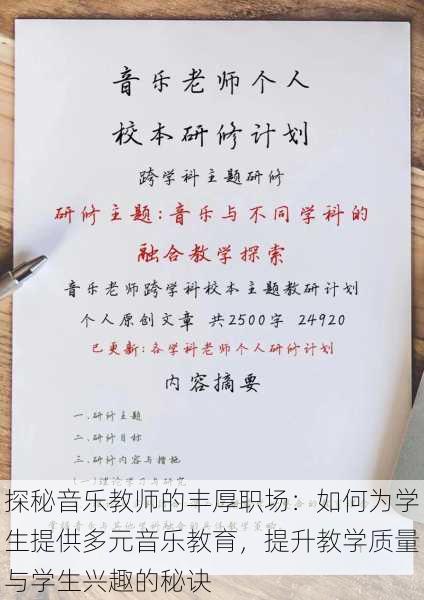 音乐老师个人
校本研修计划
跨学科主题研修
研修主题:音乐与不同学科的
融合教学探索
音乐老师跨学科校本主题教研计划
个人原创文章 共2500字 24920
已更新:各学科老师个人研修计划
内容摘要
一.研修主题
二.研修目标
三.研修内容与措施
(一)理论学习与研究
探秘音乐教师的丰厚职场：如何为学
生提供多元音乐教育，提升教学质量
与学生兴趣的秘诀